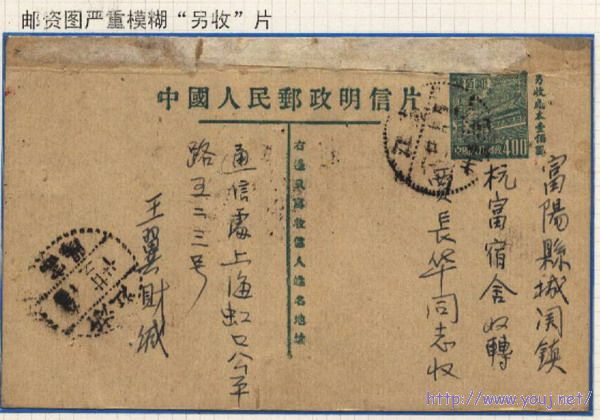 邮资图严重模糊“另收”片
中國人民郵政明信片
另收成本壹佰圓
400
右邊只寫收信人姓名地址
富陽縣城関鎮
杭富宿舍
長华同志收
通信處上海虹口公平
路五二三号
王翼
http://www.youj.net/